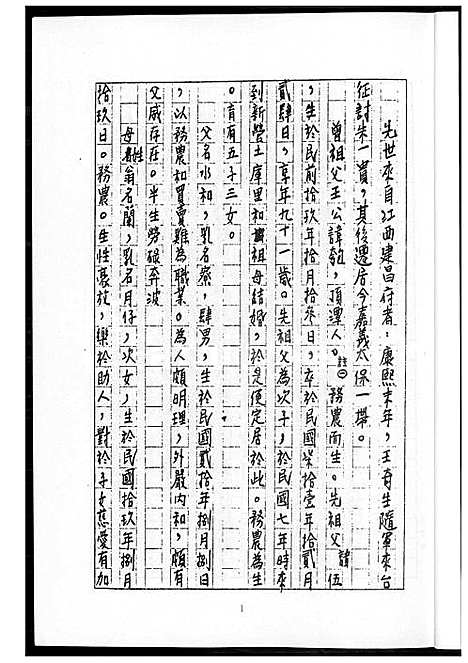 先世來自江西建昌府者：康熙末年，王奇生隨軍來台
征討朱一貴，其後遷居今嘉義太保一帶。
曾祖父王公諱，頂潭人。註㊀務農而生。先祖父諱伍
，生於民前拾玖年拾月拾參日，卒於民國柒拾壹年拾貳月
貳肆日，享年九十一歲。先祖父為次子，於民國七年時來
到新營土庫里和祖母結婚，於是便定居於此。務農為生
。育有五子三女。
父名水和，乳名寮，肆男，生於民國貳拾年捌月捌日
，以務農和買賣雞為職業。為人頗明理，外嚴內和，頗有
父威存在。半生勞碌奔波
母姓翁名蘭，乳名月仔，次女，生於民國拾玖年捌月
拾玖日。務農。生性豪放，樂於助人，對於子女慈愛有加
1